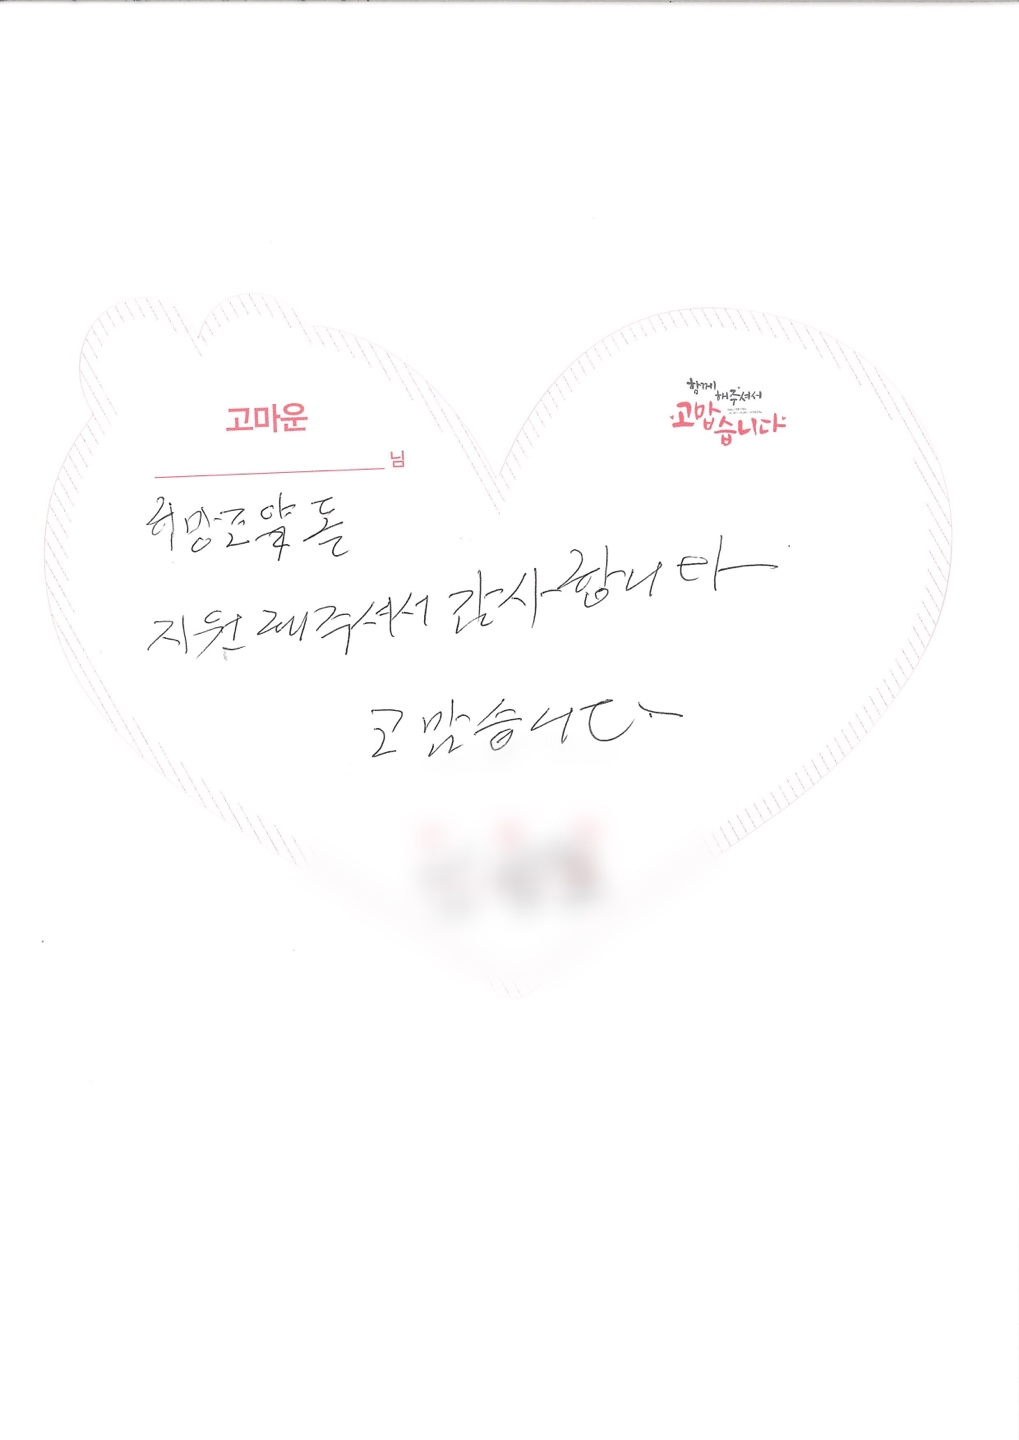 고마운
님
함께
해주셔서
고맙습니다
희망조약돌
지원해주셔서 감사합니다
고맙습니다